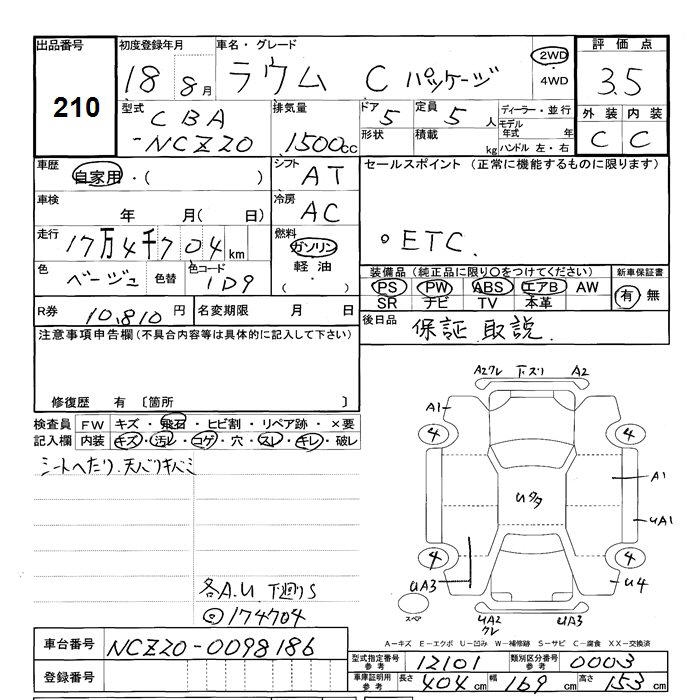 出品番号 初度登録年月 車名・グレード 評価点
210
18 8月 ラウム C パッケージ 2WD 4WD 3.5
型式 CBA -NCZ20 排気量 1500cc ドア 5 定員 5人 ディーラー・並行 外装 内装
形状 積載 kg モデル年式 年 C C
ハンドル 左・右
車歴 自家用・( ) シフト AT セールスポイント (正常に機能するものに限ります)
車検 年 月( 日) 冷房 AC
走行 17万4千704km 燃料 ガソリン 軽油 ( ・ ) 。ETC.
色 ベージュ 色替 色コード 1D9 装備品 (純正品に限り○をつけてください) 新車保証書
PS PW ABS エアB AW 有 無
SR ナビ TV 本革
R券 10,810円 名変期限 月 日 後日品 保証 取説
注意事項申告欄 (不具合内容等は具体的に記入して下さい)
修復歴 有 〔箇所 〕
検査員 FW キズ・飛石・ヒビ割・リペア跡・×要
記入欄 内装 キズ・汚レ・コゲ・穴・スレ・キレ・破レ
シートへたり.天バリキバミ
各A.U 下廻りS
◎174704
A2クレ 下ズリ A2
A1
4 4
Uクタ A1
UA1
4 4
UA3 U4
スペア UA2 クレ UA3
A-キズ E-エクボ U-凹み W-補修跡 S-サビ C-腐食 XX-交換済
車台番号 NCZ20-0098186 型式指定番号 参考 12101 類別区分番号 参考 0003
登録番号 車庫証明用 参考 長さ 404cm 幅 169cm 高さ 153cm